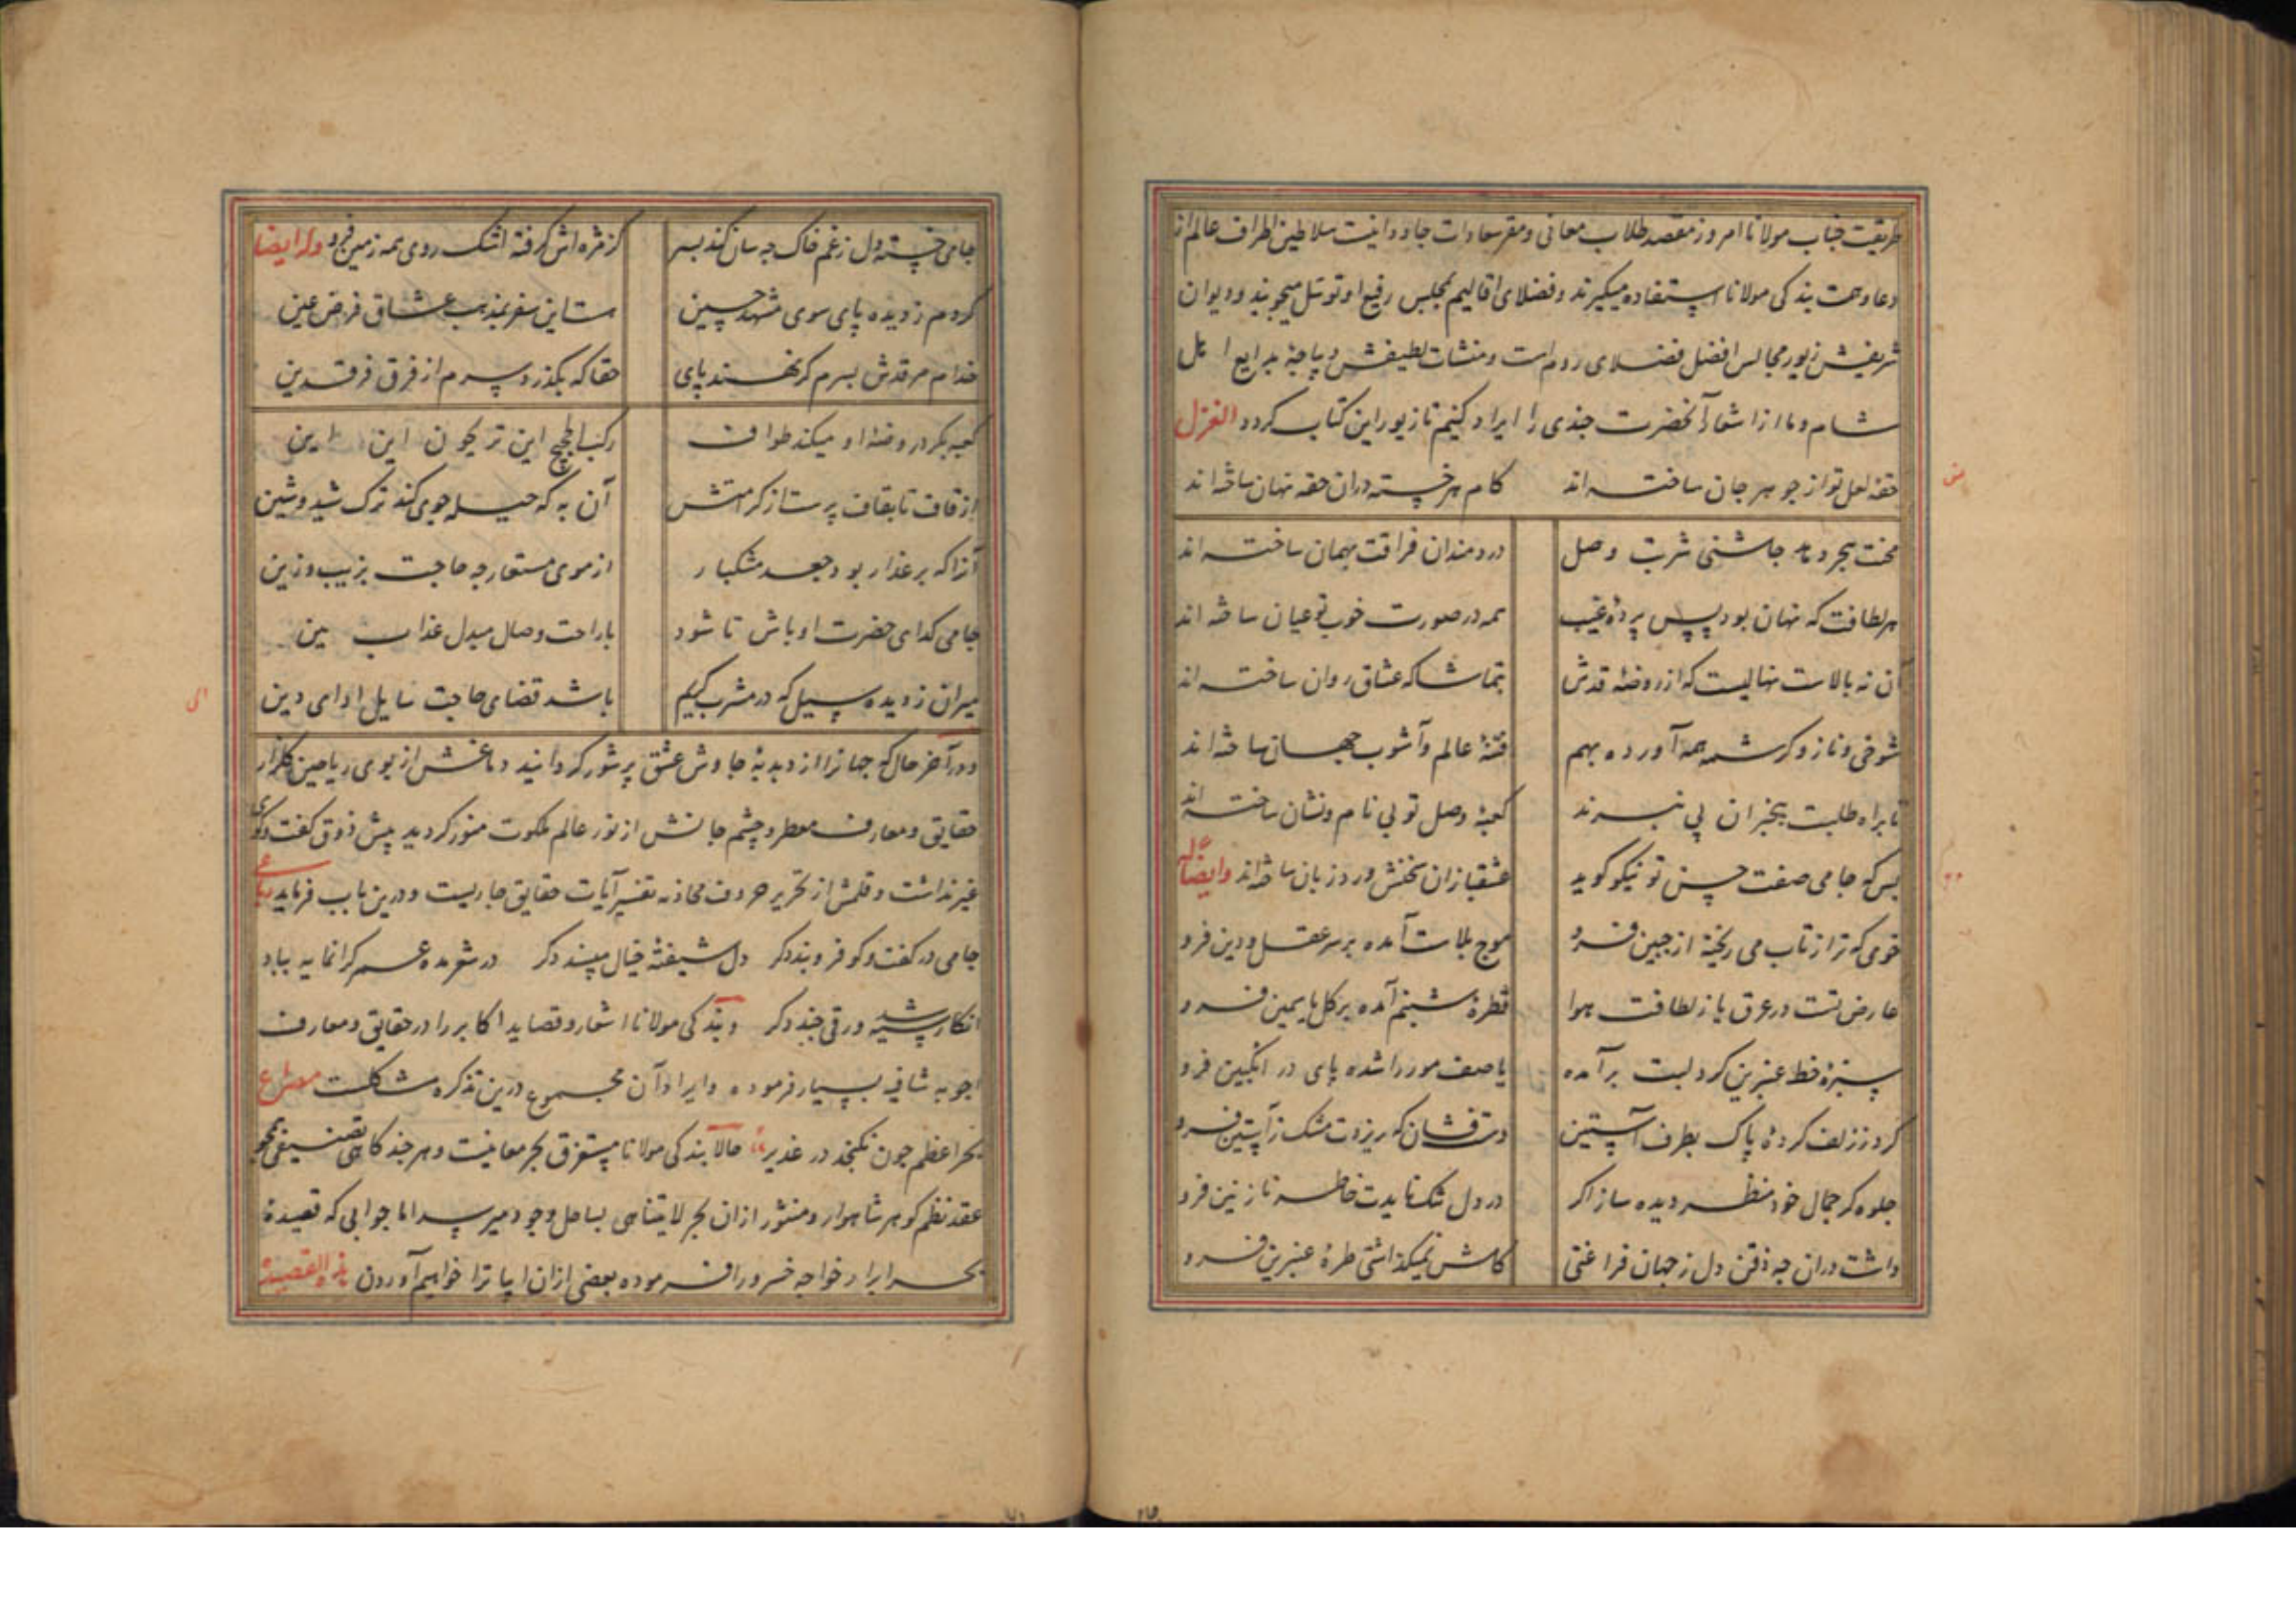 طریقت جناب مولانا امروز مقصد طلاب معانی و مقر سعادات جاودانیت سلاطین اطراف عالم از
دعا و همت بندگی مولانا استفاده میگیرند و فضلای اقالیم بمجلس رفیع او توسل میجویند و دیوان
شریفش زیور مجالس افضل فضلای روم است و منشات لطیفش دیباجهٔ بدایع اهل
شام و ما از اشعار آنحضرت چندی را ایراد کنیم تا زیور این کتاب گردد الغزل
حقهٔ لعل تو از جوهر جان ساخته‌اند کام هر خسته دران حقه نهان ساخته‌اند
محنت هجر دهد چاشنی شربت وصل دردمندان فراقت بهمان ساخته‌اند
هر لطافت که نهان بود پس پردهٔ غیب همه در صورت خوب تو عیان ساخته‌اند
آن نه بالاست نهالیست که از روضهٔ قدس بتماشاگه عشاق روان ساخته‌اند
شوخی و ناز و کرشمه همه آورده بهم فتنهٔ عالم و آشوب جهان ساخته‌اند
تا براه طلبت بیخبران پی نبرند کعبهٔ وصل تو بی نام و نشان ساخته‌اند
بس که جامی صفت حسن تو نیکو گوید عشقبازان سخنش ورد زبان ساخته‌اند وله ایضا
خوی که ترا ز تاب می ریخته از جبین فرو موج بلاست آمده بر سر عقل و دین فرو
عارض تست در عرق یا ز لطافت هوا قطرهٔ شبنم آمده بر گل یاسمین فرو
سبزهٔ خط عنبرین گرد لبت برآمده یا صف مور را شده پای در انگبین فرو
گرد ز زلف کردهٔ پاک بطرف آستین دست فشان که ریزدت مشک ز آستین فرو
جلوه‌گر جمال خود منظر دیده ساز اگر در دل تنگ نایدت خاطر نازنین فرو
داشت دران چه ذقن دل ز جهان فراغتی کاش نمیگذاشتی طرهٔ عنبرین فرو
جامی خسته دل ز غم خاک چه سان کند بسر کز مژه‌اش گرفته اشک روی همه زمین فرو وله ایضا
کردم ز دیده پای سوی مشهد حسین هست این سفر بمذهب عشاق فرض عین
خدام مرقدش بسرم گر نهند پای حقا که بگذرد سرم از فرق فرقدین
کعبه بگرد روضهٔ او میکند طواف رکب الحجیج این تروحون این این
از قاف تا بقاف پرست از کرامتش آن به که حیله جوی کند ترک شید و شین
آنرا که بر عذار بود جعد مشکبار از موی مستعار چه حاجت بزیب و زین
جامی گدای حضرت او باش تا شود با راحت وصال مبدل عذاب بین
میران ز دیده سیل که در مشرب کریم باشد قضای حاجت سایل ادای دین
و در آخر حال که جانرا از دبدبهٔ چاوش عشق پر شور گردانید دماغش از بوی ریاحین گلزار
حقایق و معارف معطر و چشم جانش از نور عالم ملکوت منور گردید پیش ذوق گفت و گوی
غیر نداشت و قلمش از تحریر حروف مجاز به تفسیر آیات حقایق جاریست و درین باب فرماید رباعی
جامی در گفت و گو فرو بند دگر دل شیفتهٔ خیال مپسند دگر در شعر مده عمر گرانمایه بباد
انگار سیه شد ورقی چند دگر و بندگی مولانا اشعار و قصاید اکابر را در حقایق و معارف
اجوبهٔ شافی بسیار فرموده و ایراد آن مجموع درین تذکره مشکلست مصراع
بحر اعظم چون نگنجد در غدیر حالا بندگی مولانا مستغرق بحر معانیست و هر چند گاهی تصنیفی همچو
عقد نظم گوهر شاهوار و منثور از ان بحر لایتناهی بساحل وجود میرسد اما جوابی که قصیدهٔ
بحر ابرار خواجه خسرو را فرموده بعضی از ان ابیاترا خواهیم آوردن هذه القصیدة